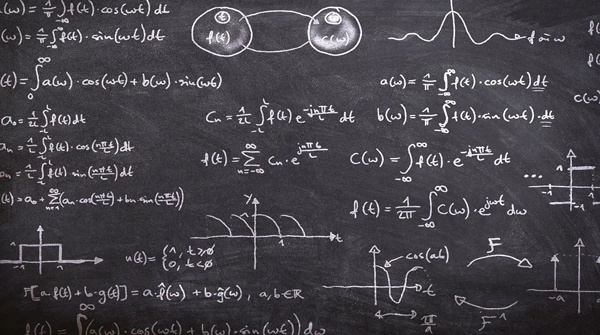 (ω) = 1/π ∫ f(t) · cos(ωt) dt
(ω) = 1/π ∫ f(t) · sin(ωt) dt
t f(t) ω C(ω)
f sin ω
f(t) = ∫₀^∞ a(ω) · cos(ωt) + b(ω) · sin(ωt)
a(ω) = 1/π ∫_{-∞}^{∞} f(t) · cos(ωt) dt
a₀ = 1/2L ∫_{-L}^{L} f(t) dt
Cₙ = 1/2L ∫_{-L}^{L} f(t) e^{-jnπt/L} dt
b(ω) = 1/π ∫_{-∞}^{∞} f(t) · sin(ωt) · dt
C(ω)
aₙ = 1/L ∫_{-L}^{L} f(t) · cos(nπt/L) dt
f(t) = ∑_{n=-∞}^{∞} Cₙ · e^{jnπt/L}
C(ω) = ∫_{-∞}^{∞} f(t) · e^{-jωt} dt
= 1/L ∫_{-L}^{L} f(t) sin(nπt/L) dt
...
f(t) = a₀ + ∑_{n=1}^{∞} (aₙ · cos(nπt/L) + bₙ · sin(nπt/L))
f(t) = 1/2π ∫_{-∞}^{∞} C(ω) · e^{jωt} dω
-1 1
1
y 1 t
u(t) = { 1, t>0
0, t<0
cos(at)
F
F[a · f(t) + b · g(t)] = a · f̂(ω) + b · ĝ(ω), a,b ∈ ℝ
F⁻¹
-1 1
f(t) = ∫^∞ (a(ω) · cos(ωt) + b(ω) · sin(ωt)) dω